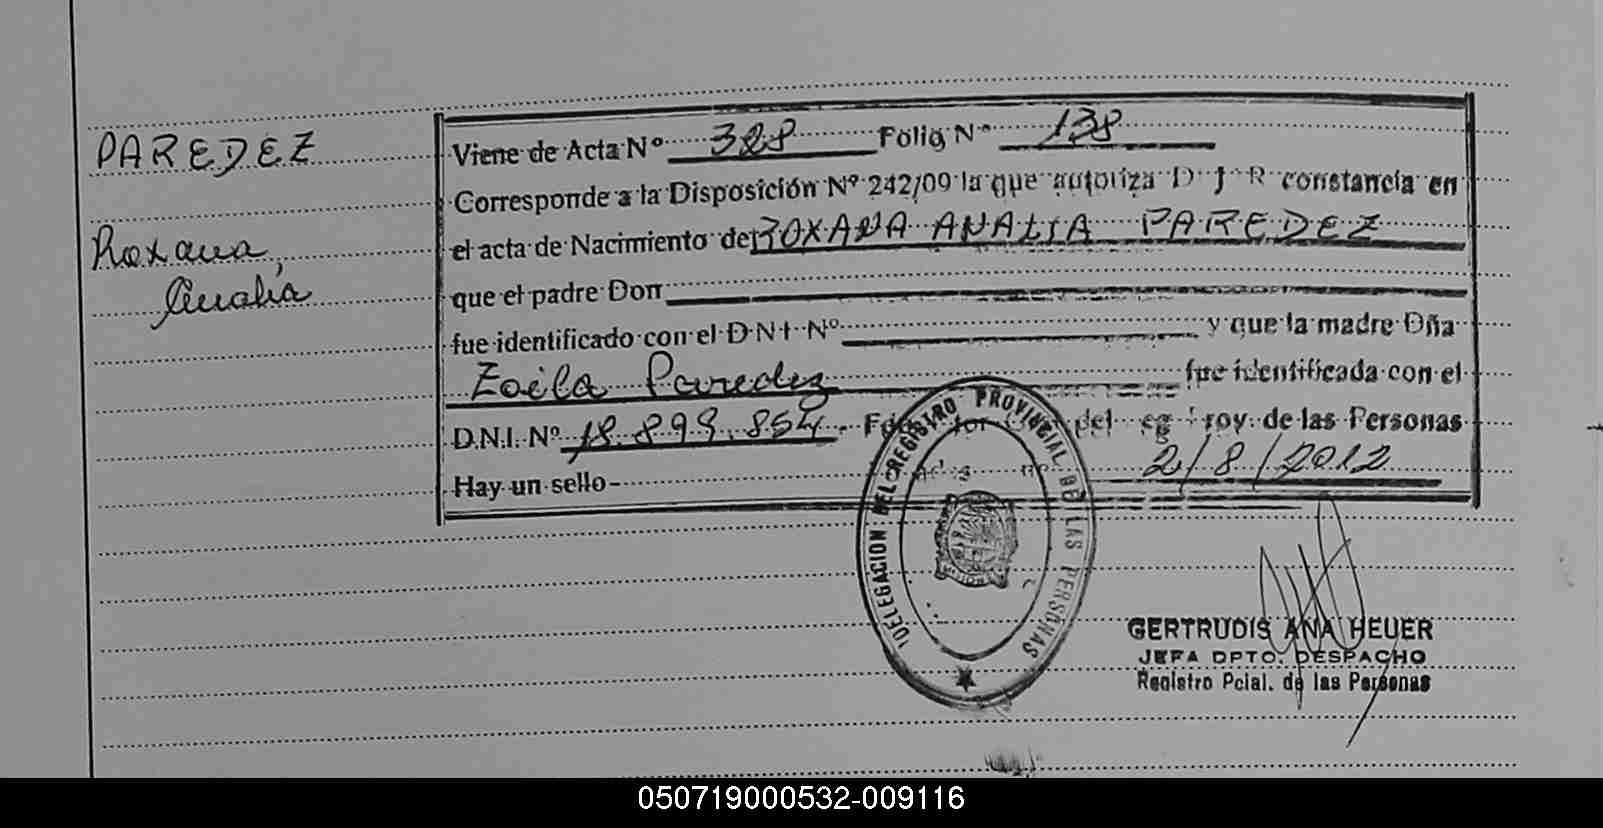 PAREDEZ
Roxana,
Analía
Viene de Acta Nº 328 Folio Nº 138
Corresponde a la Disposición Nº 242/09 la que autoriza D J R constancia en
el acta de Nacimiento de ROXANA ANALIA PAREDEZ
que el padre Don
fue identificado con el D N I Nº y que la madre Dña
Zoila Paredez fue identificada con el
D.N.I. Nº 18.899.854 de las Personas
Hay un sello- 2/8/2012
DELEGACION DEL REGISTRO PROVINCIAL DE LAS PERSONAS
GERTRUDIS ANA HEUER
JEFA DPTO. DESPACHO
Registro Pcial. de las Personas
050719000532-009116